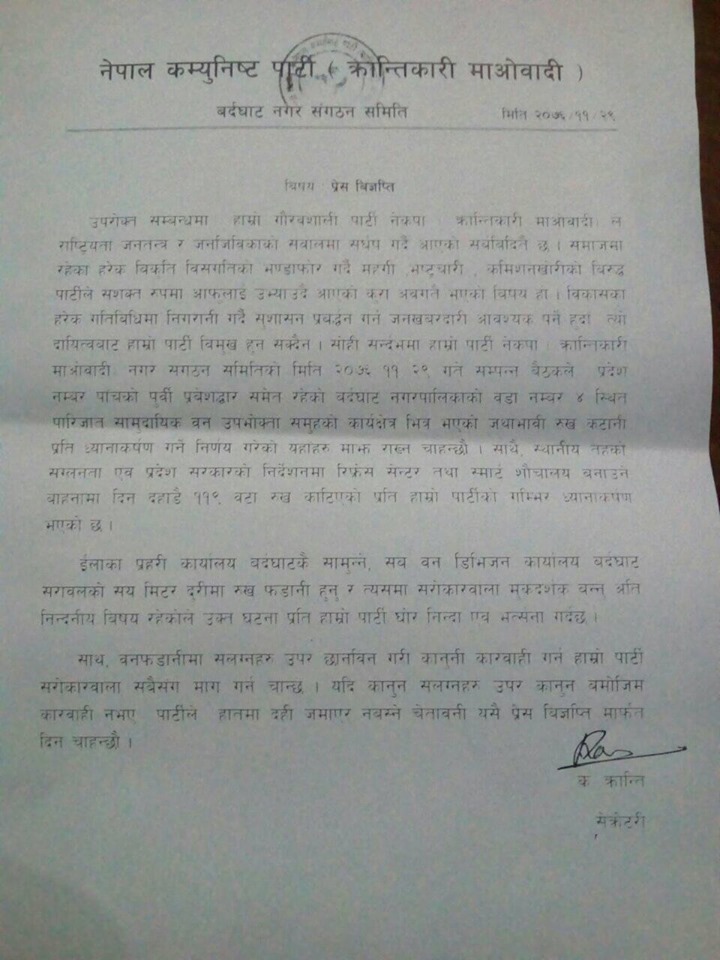 नेपाल कम्युनिष्ट पार्टी ( क्रान्तिकारी माओवादी )
बर्दघाट नगर संगठन समिति
मिति २०७६/११/२९
विषय: प्रेस विज्ञप्ति
उपरोक्त सम्बन्धमा हाम्रो गौरवशाली पार्टी नेकपा क्रान्तिकारी माओवादी) ले
राष्ट्रियता जनतन्त्र र जनजिविकाको सवालमा संर्घष गर्दै आएको सर्वविदितै छ । समाजमा
रहेका हरेक विकृति विसगतिको भण्डाफोर गर्दै महगी ,भष्टचारी , कमिशनखोरीको विरुद्ध
पार्टीले सशक्त रुपमा आफुलाई उभ्याउदै आएको कुरा अवगतै भएको विषय हो । विकासका
हरेक गतिबिधिमा निगरानी गर्दै सुशासन प्रबर्द्धन गर्न जनखबरदारी आवश्यक पर्ने हुदा त्यो
दायित्वबाट हाम्रो पार्टी विमुख हुन सक्दैन । सोही सन्दर्भमा हाम्रो पार्टी नेकपा क्रान्तिकारी
माओवादी नगर संगठन समितिको मिति २०७६ ११ २९ गते सम्पन्न बैठकले प्रदेश
नम्बर पाचको पूर्वी प्रबेशद्धार समेत रहेको बर्दघाट नगरपालिकाको वडा नम्बर ४ स्थित
पारिजात सामुदायिक वन उपभोक्ता समुहको कार्यक्षेत्र भित्र भएको जथाभावी रुख कटानी
प्रति ध्यानाकर्षण गर्ने निर्णय गरेको यहाँहरु माझ राख्न चाहन्छौ । साथै, स्थानीय तहको
सग्लनता एवं प्रदेश सरकारको निर्देशनमा रिफ्रेस सेन्टर तथा स्मार्ट शौचालय बनाउने
बाहनामा दिन दहाडै ११९ वटा रुख काटिएको प्रति हाम्रो पार्टीको गम्भिर ध्यानाकर्षण
भएको छ ।
ईलाका प्रहरी कार्यालय बर्दघाटकै सामुन्ने, सब वन डिभिजन कार्यालय बर्दघाट
सरावलको सय मिटर दुरीमा रुख फडानी हुनु र त्यसमा सरोकारवाला मुकदर्शक बन्नु अति
निन्दनीय विषय रहेकोले उक्त घटना प्रति हाम्रो पार्टी घोर निन्दा एवं भर्त्सना गर्दछ ।
साथ, वनफडानीमा सलग्नहरु उपर छानविन गरी कानुनी कारवाही गर्न हाम्रो पार्टी
सरोकारवाला सबैसंग माग गर्न चान्छ । यदि कानुन सलग्नहरु उपर कानुन बमोजिम
कारवाही नभए पार्टीले हातमा दही जमाएर नबस्ने चेतावनी यसै प्रेस विज्ञप्ति मार्फत
दिन चाहन्छौ ।
क क्रान्ति
सेक्रेटरी